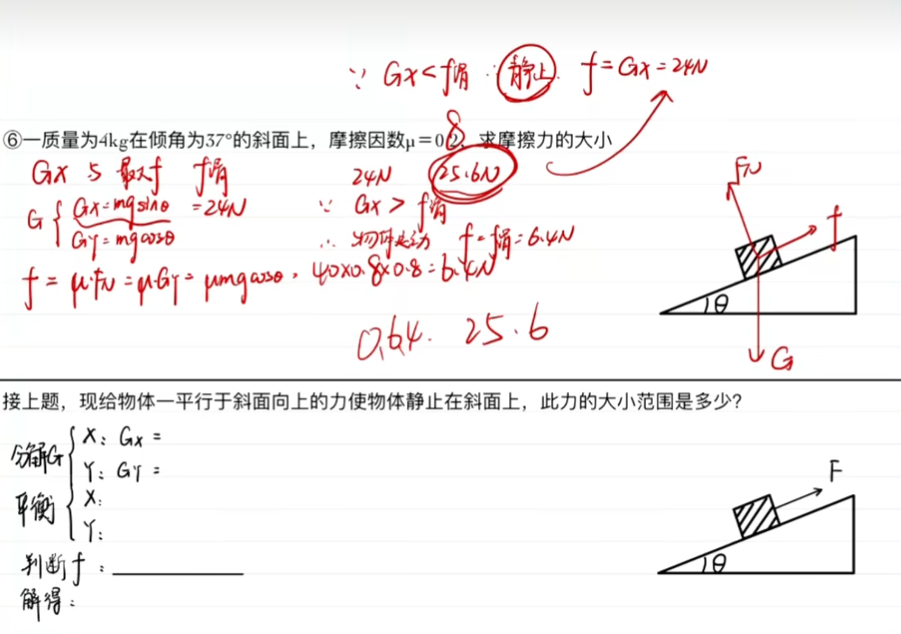 ∵ Gx<f滑 ∴ 静止. f=Gx=24N
8
⑥一质量为4kg在倾角为37°的斜面上，摩擦因数μ＝0.2，求摩擦力的大小
Gx 与 最大f f滑 24N 25.6N
G { Gx=mgsinθ =24N ∵ Gx > f滑
Gy=mgcosθ ∴ 物体运动 f=f滑=6.4N
f = μFN = μGy = μmgcosθ = 40×0.8×0.8=6.4N
0.64. 25.6
FN
f
θ
G
接上题，现给物体一平行于斜面向上的力使物体静止在斜面上，此力的大小范围是多少？
分解G { X: Gx =
Y: Gy =
平衡 { X:
Y:
判断f :
解得:
F
θ